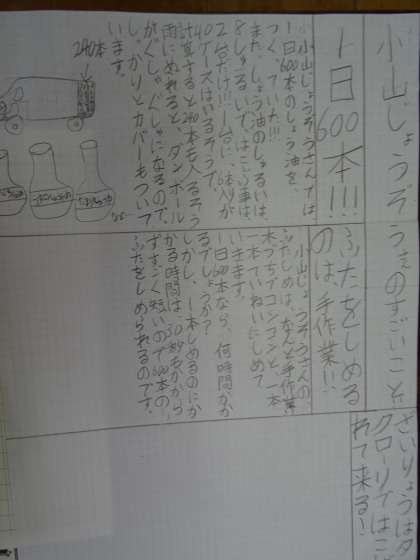 小山じょうぞうさんのすごいこと
1日600本!!!
小山じょうぞうさんでは、
1日600本のしょう油を、
つくっていた!!!
また、しょう油のしゅるいは、
8しゅるいで、はこぶ車は、
2台だけ!!!1台に、6本入りが
40ケースはいるそうで、
計算すると240本も入るそう
雨にぬれると、ダンボール
がぐしゃぐしゃになるので、
しっかりとカバーもついて
います。
240本
ふたをしめる
のは、手作業!!
小山じょうぞうさんの
ふたしめは、なんと手作業
木づちでコンコンと、一本
一本ていねいにしめて
いきます。
1日600本なら、何時間かか
るでしょうか?
しかし、1本しめるのにか
かる時間は、30秒もかから
ずすごく短いので600本の、
ふたをしめられるのです。
ざいりょうはタ
クローリではこ
れて来る!